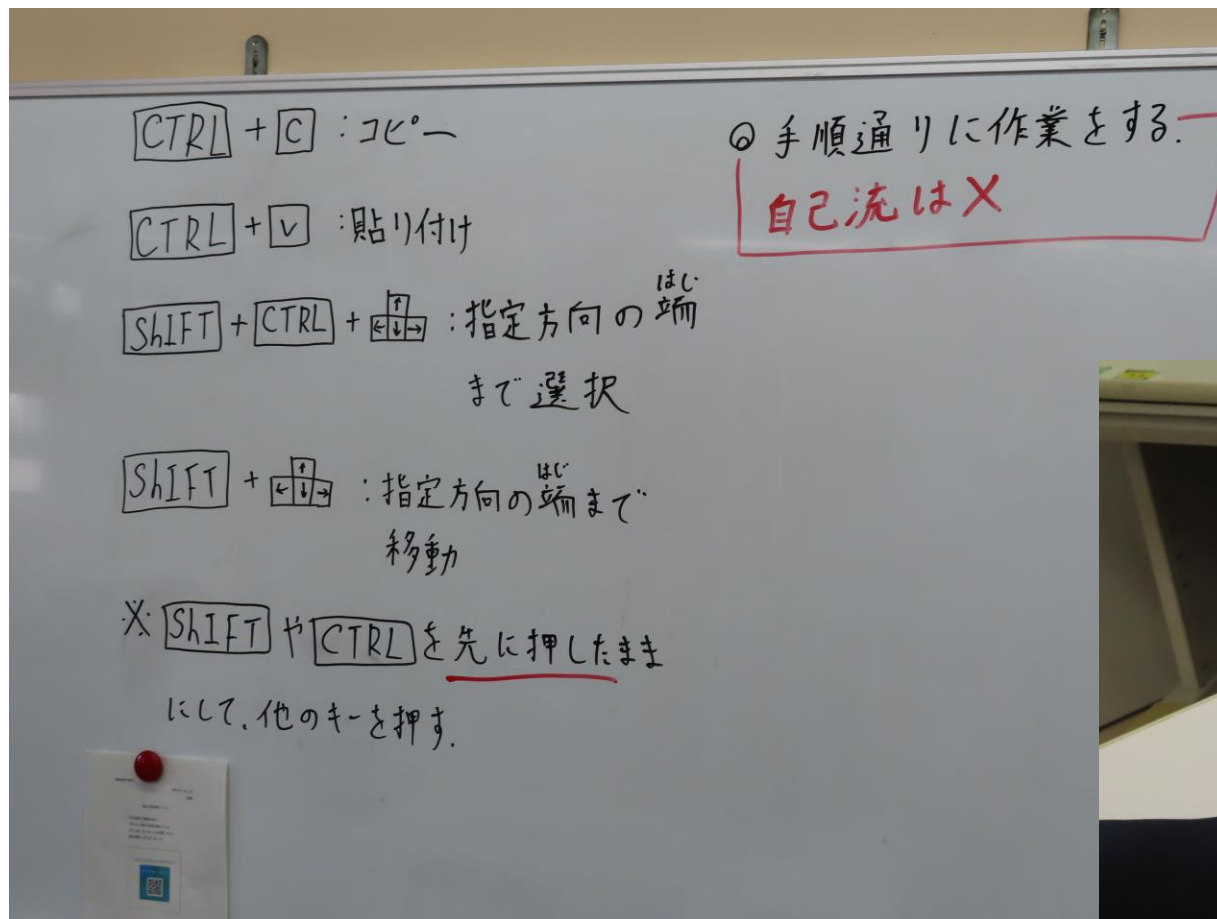 CTRL + C : コピー
CTRL + V : 貼り付け
ShIFT + CTRL + ↑←↓→ : 指定方向の端
はじ
まで選択
ShIFT + ↑←↓→ : 指定方向の端まで
はじ
移動
※ ShIFT や CTRL を先に押したまま
にして、他のキーを押す.
◎ 手順通りに作業をする.
自己流は X